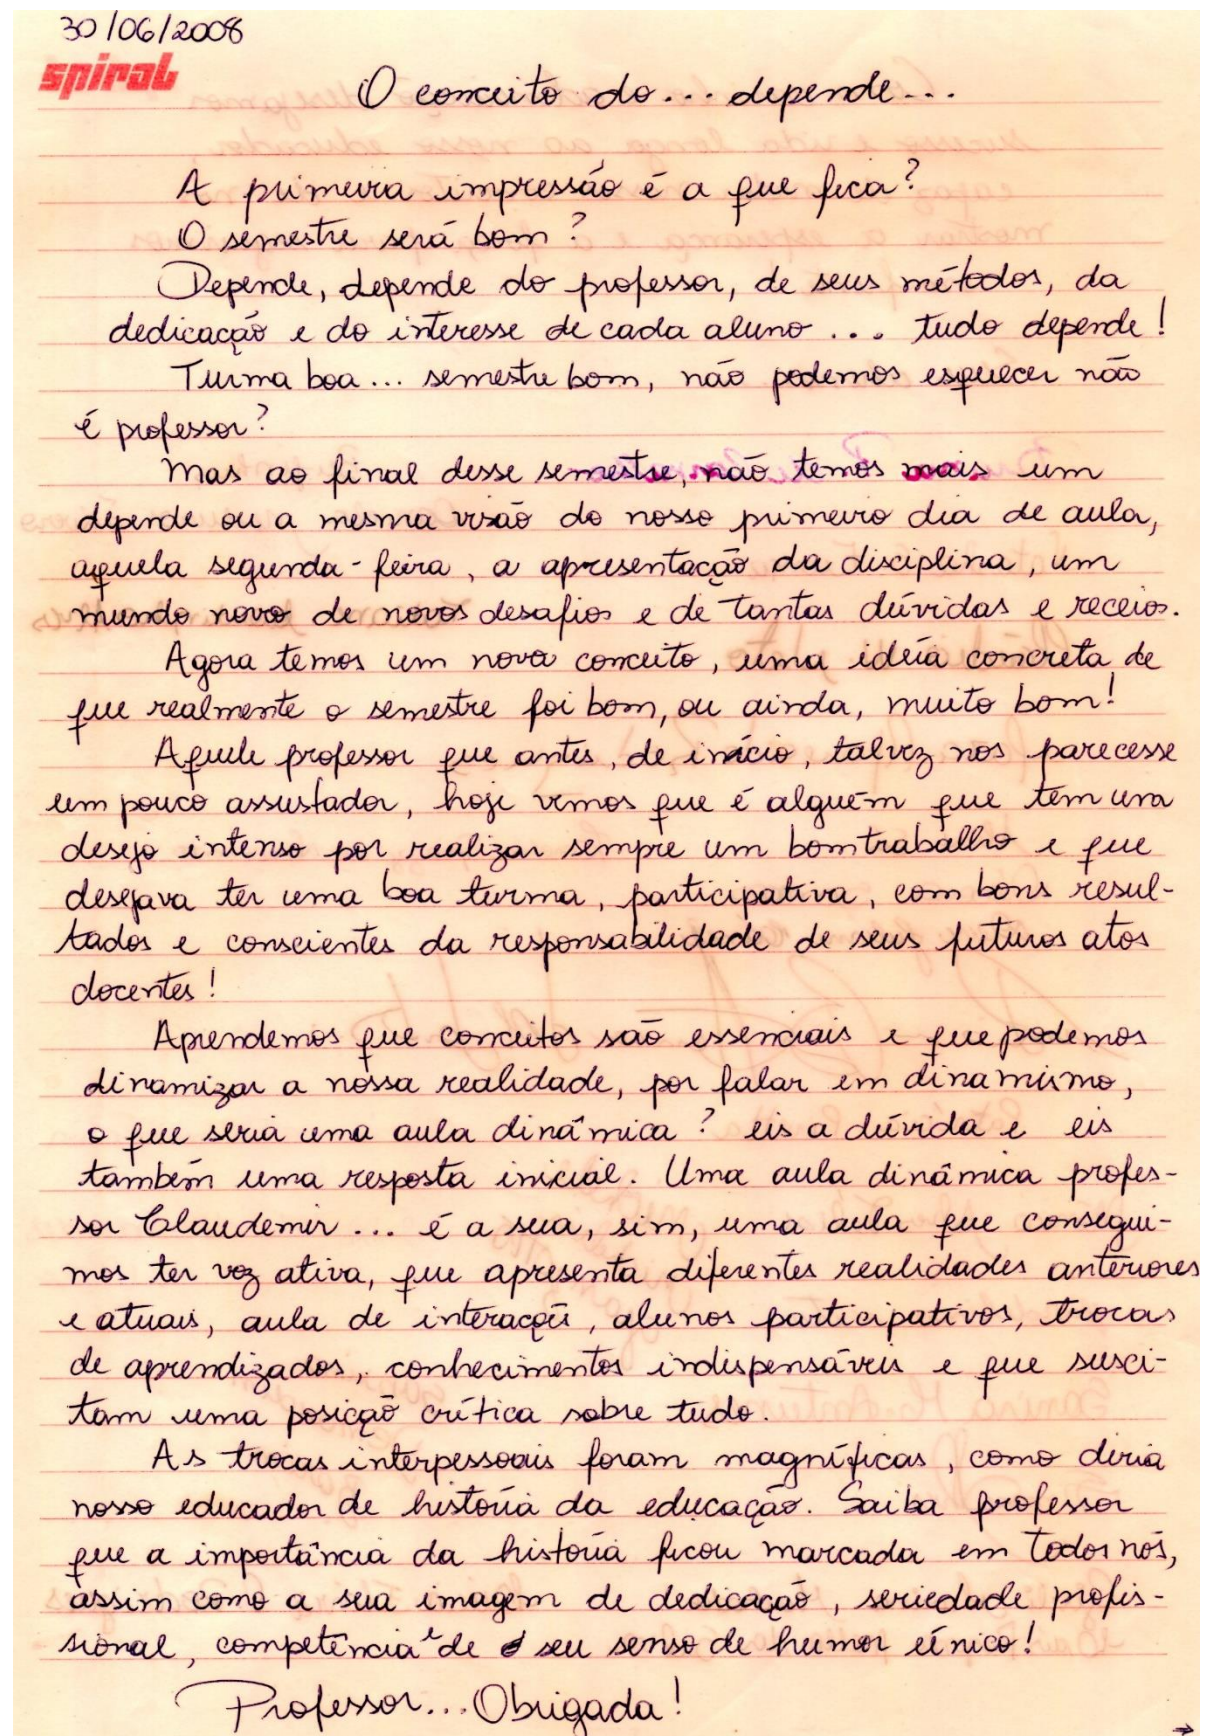 30/06/2008
spiral
O conceito do... depende...
A primeira impressão é a que fica?
O semestre será bom?
Depende, depende do professor, de seus métodos, da
dedicação e do interesse de cada aluno ... tudo depende!
Turma boa... semestre bom, não podemos esquecer não
é professor?
Mas ao final desse semestre, não temos mais um
depende ou a mesma visão do nosso primeiro dia de aula,
aquela segunda-feira, a apresentação da disciplina, um
mundo novo de novos desafios e de tantas dúvidas e receios.
Agora temos um novo conceito, uma idéia concreta de
que realmente o semestre foi bom, ou ainda, muito bom!
Aquele professor que antes, de início, talvez nos parecesse
um pouco assustador, hoje vemos que é alguém que tem um
desejo intenso por realizar sempre um bom trabalho e que
desejava ter uma boa turma, participativa, com bons resul-
tados e conscientes da responsabilidade de seus futuros atos
docentes!
Aprendemos que conceitos são essenciais e que podemos
dinamizar a nossa realidade, por falar em dinamismo,
o que seria uma aula dinâmica? eis a dúvida e eis
também uma resposta inicial. Uma aula dinâmica profes-
sor Claudemir ... é a sua, sim, uma aula que consegui-
mos ter voz ativa, que apresenta diferentes realidades anteriores
e atuais, aula de interação, alunos participativos, trocas
de aprendizados, conhecimentos indispensáveis e que susci-
tam uma posição crítica sobre tudo.
As trocas interpessoais foram magníficas, como diria
nosso educador de história da educação. Saiba professor
que a importância da história ficou marcada em todos nós,
assim como a sua imagem de dedicação, seriedade profis-
sional, competência e de seu senso de humor único!
Professor... Obrigada!
→